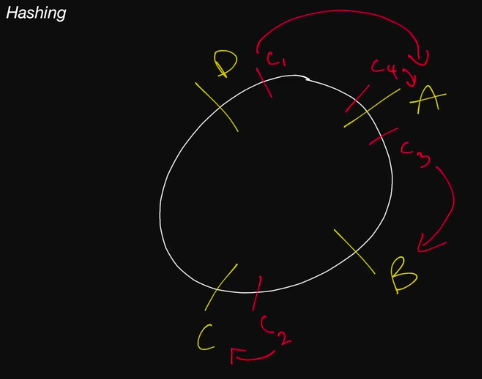 Hashing
D
C1
C4
A
C3
B
C2
C